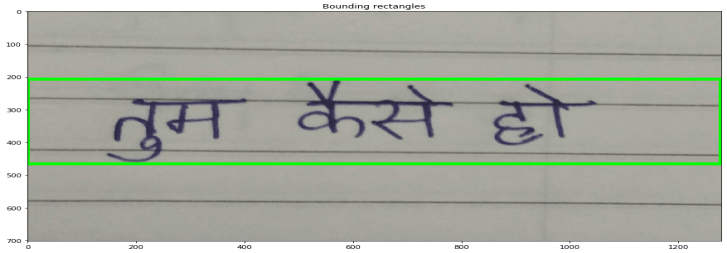 Bounding rectangles
0
100
200
300
तुम कैसे हो
400
500
600
700
0 200 400 600 800 1000 1200